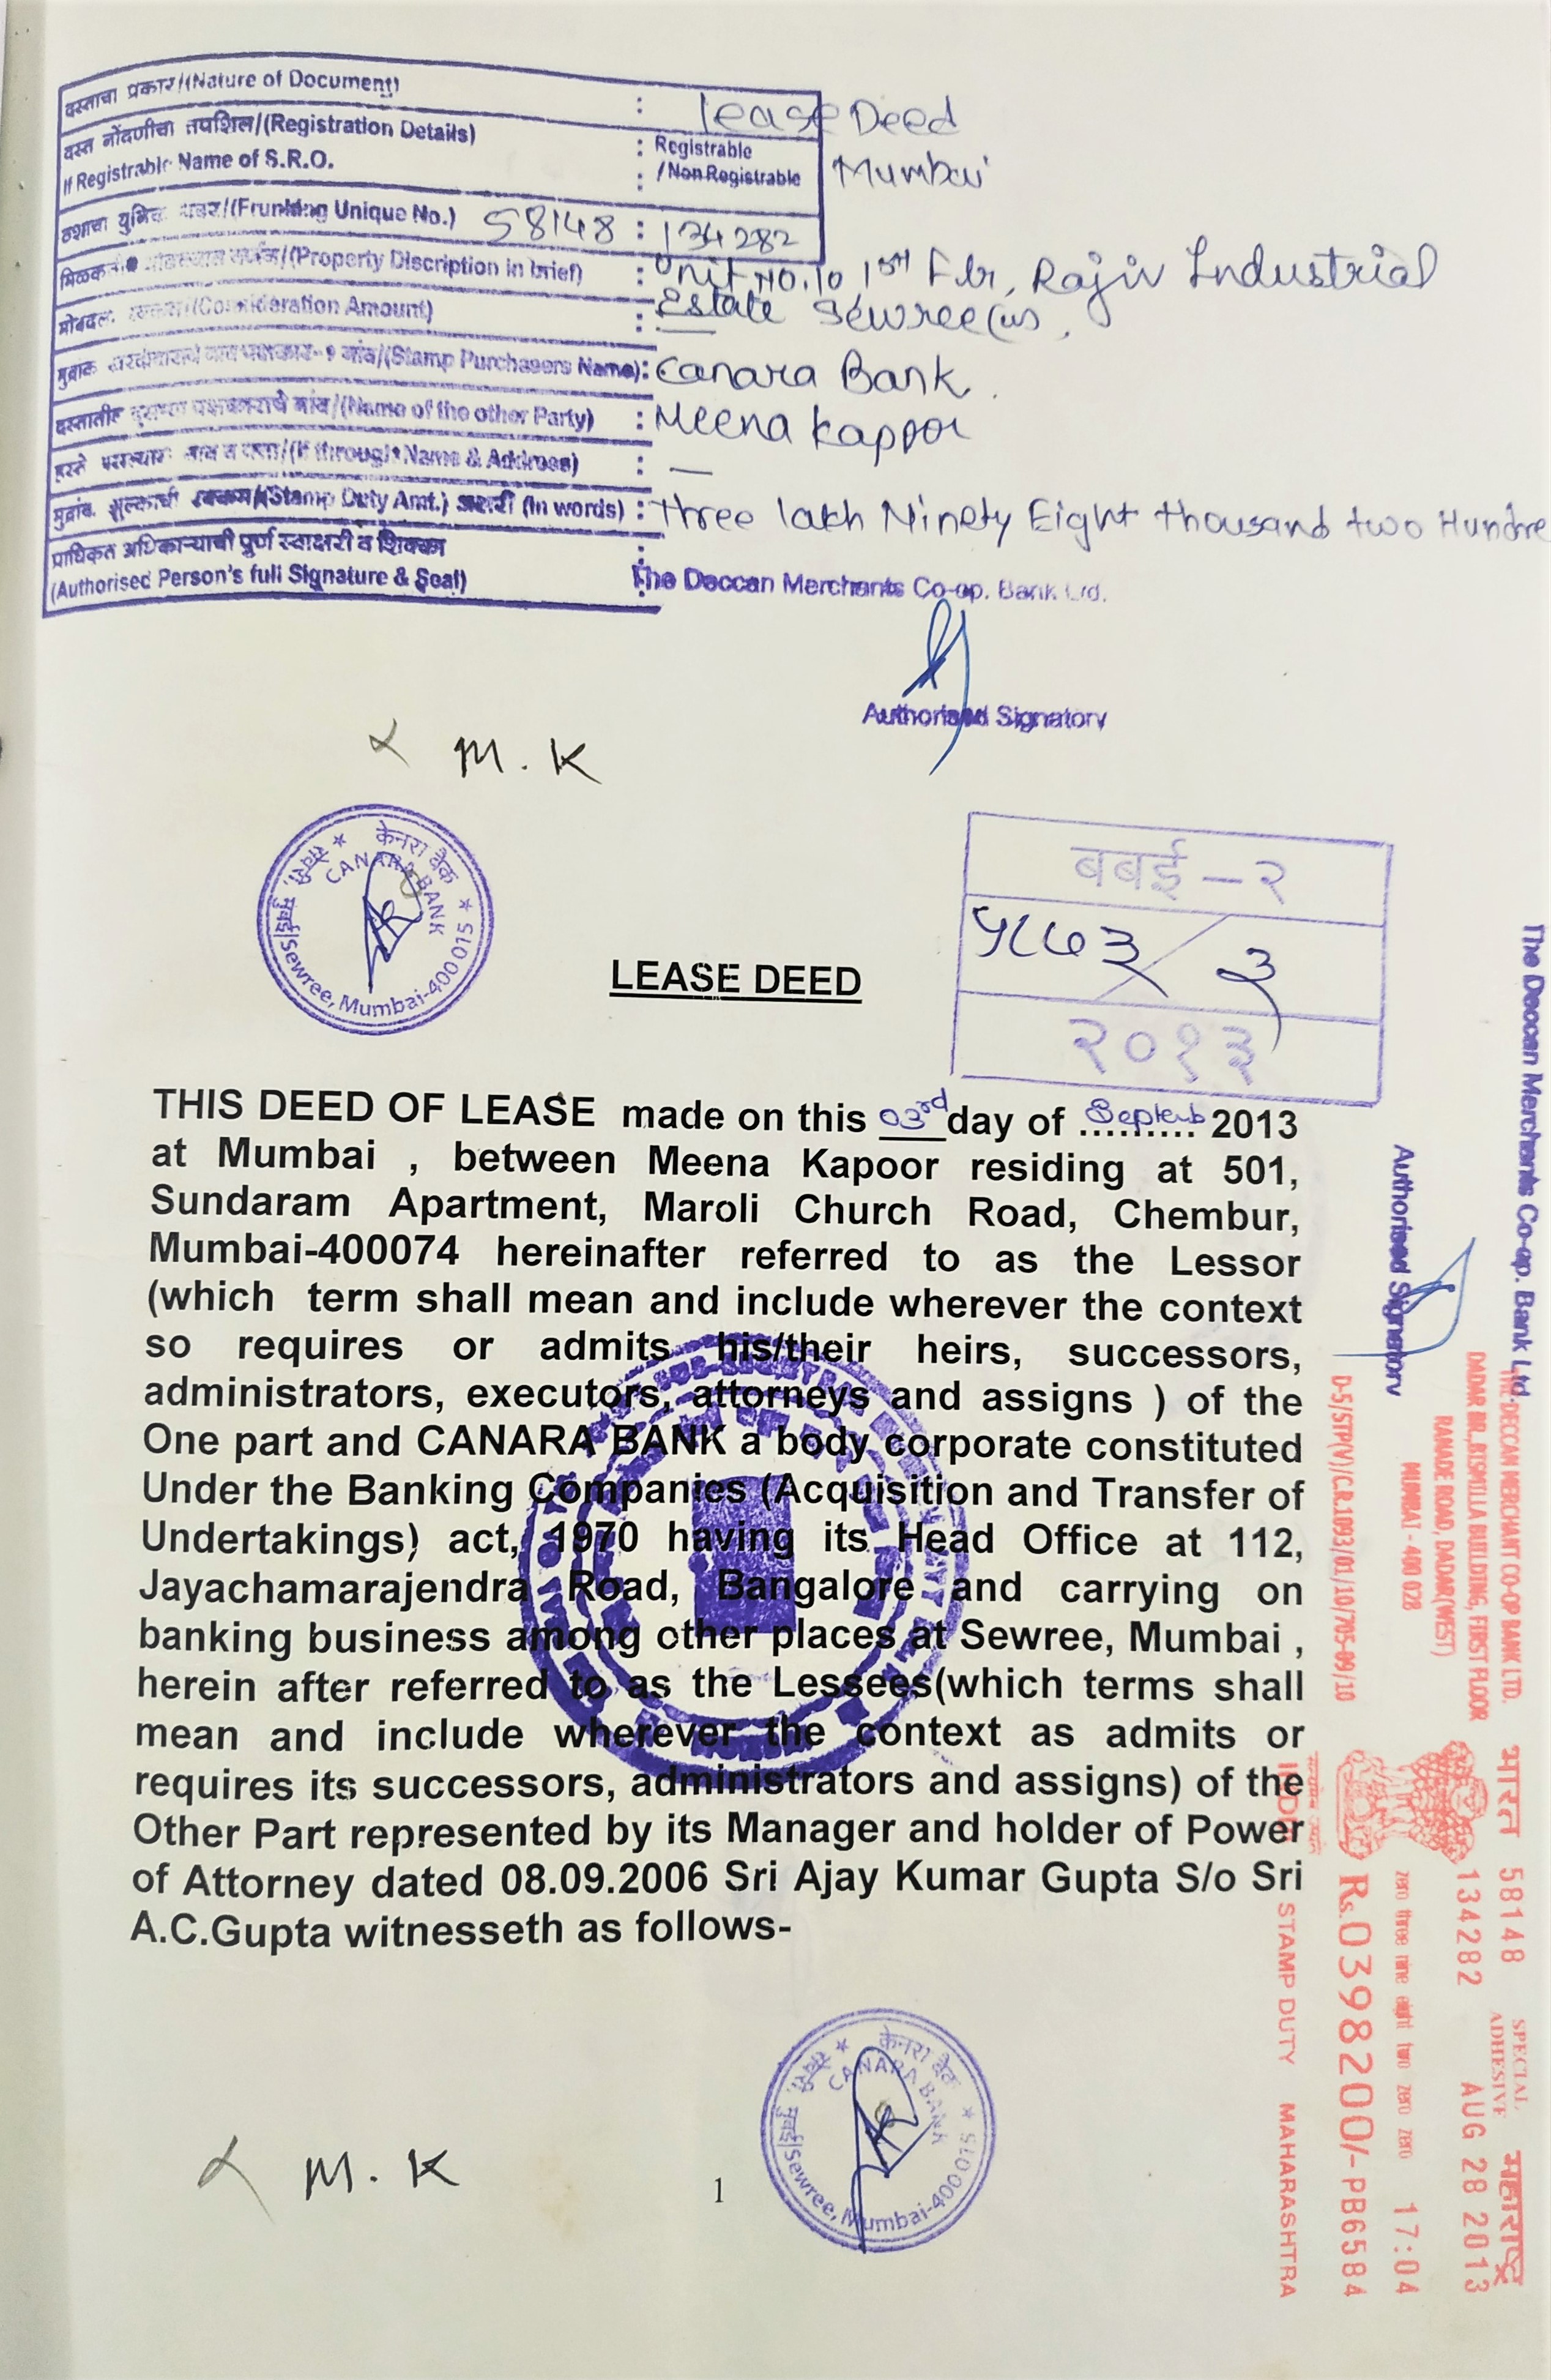 दस्ताचा प्रकार/(Nature of Document) : lease Deed
दस्त नोंदणीचा तपशिल/(Registration Details) : Registrable
If Registrable Name of S.R.O. : /Non Registrable Mumbai
(Franking Unique No.) 58148 : 134282
(Property Discription in brief) : Unit No.10 1st Flr, Rajiv Industrial
Estate Sewree(w),
(Consideration Amount) : —
(Stamp Purchasers Name): Canara Bank.
(Name of the other Party) : Meena Kapoor
(If through Name & Address) : —
(Stamp Duty Amt.) (In words) : Three lakh Ninety Eight thousand two Hundre
प्राधिकृत अधिकाऱ्याची पुर्ण स्वाक्षरी व शिक्का :
(Authorised Person's full Signature & Seal) :
The Deccan Merchants Co-op. Bank Ltd.
Authorised Signatory
M. K
केनरा बैंक
CANARA BANK
सेवरी, मुंबई/Sewree, Mumbai-400 015
बबई - २
५८७३ / ३
२०१३
LEASE DEED
THIS DEED OF LEASE made on this 03rd day of Septemb 2013
at Mumbai , between Meena Kapoor residing at 501,
Sundaram Apartment, Maroli Church Road, Chembur,
Mumbai-400074 hereinafter referred to as the Lessor
(which term shall mean and include wherever the context
so requires or admits his/their heirs, successors,
administrators, executors, attorneys and assigns ) of the
One part and CANARA BANK a body corporate constituted
Under the Banking Companies (Acquisition and Transfer of
Undertakings) act, 1970 having its Head Office at 112,
Jayachamarajendra Road, Bangalore and carrying on
banking business among other places at Sewree, Mumbai ,
herein after referred to as the Lessees(which terms shall
mean and include wherever the context as admits or
requires its successors, administrators and assigns) of the
Other Part represented by its Manager and holder of Power
of Attorney dated 08.09.2006 Sri Ajay Kumar Gupta S/o Sri
A.C.Gupta witnesseth as follows-
M. K
1
केनरा बैंक
CANARA BANK
सेवरी, मुंबई/Sewree, Mumbai-400 015
The Deccan Merchants Co-op. Bank Ltd.
Authorised Signatory
THE DECCAN MERCHANT CO-OP BANK LTD.
DADAR BR.,BISMILLA BUILDING, FIRST FLOOR
RANADE ROAD, DADAR(WEST)
MUMBAI - 400 028
D-5/STP(V)/C.R.1093/01/10/705-09/10
भारत 58148 SPECIAL ADHESIVE महाराष्ट्र
134282 AUG 28 2013
zero three nine eight two zero zero 17:04
Rs.0398200/-PB6584
INDIA STAMP DUTY MAHARASHTRA